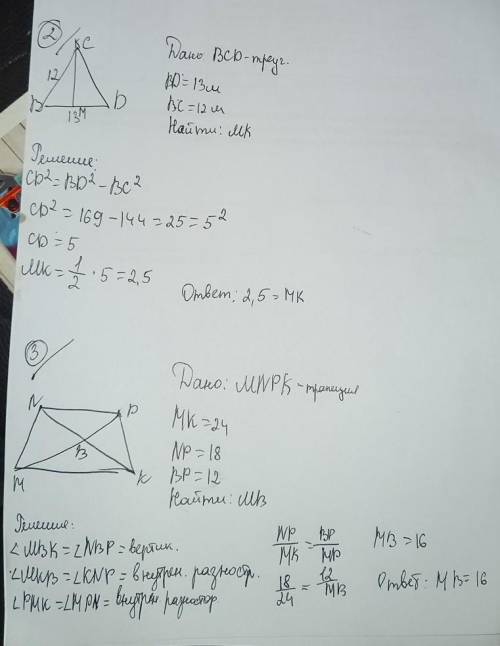 2
C
12
B
D
13 M
Дано BCD-треуг.
BD=13м
BC=12м
Найти: MK
Решение:
CD²=BD²-BC²
CD²=169-144=25=5²
CD=5
MK=1/2·5=2,5
Ответ: 2,5=MK
3
N
P
B
M
K
Дано: MNPK-трапеция
MK=24
NP=18
BP=12
Найти: MB
Решение:
∠MBK=∠NBP=вертик.
∠MKB=∠KNP=внутрен. разностр.
∠PMK=∠MPN=внутрен разностор
NP/MK=BP/MP
18/24=12/MB
MB=16
Ответ: MB=16